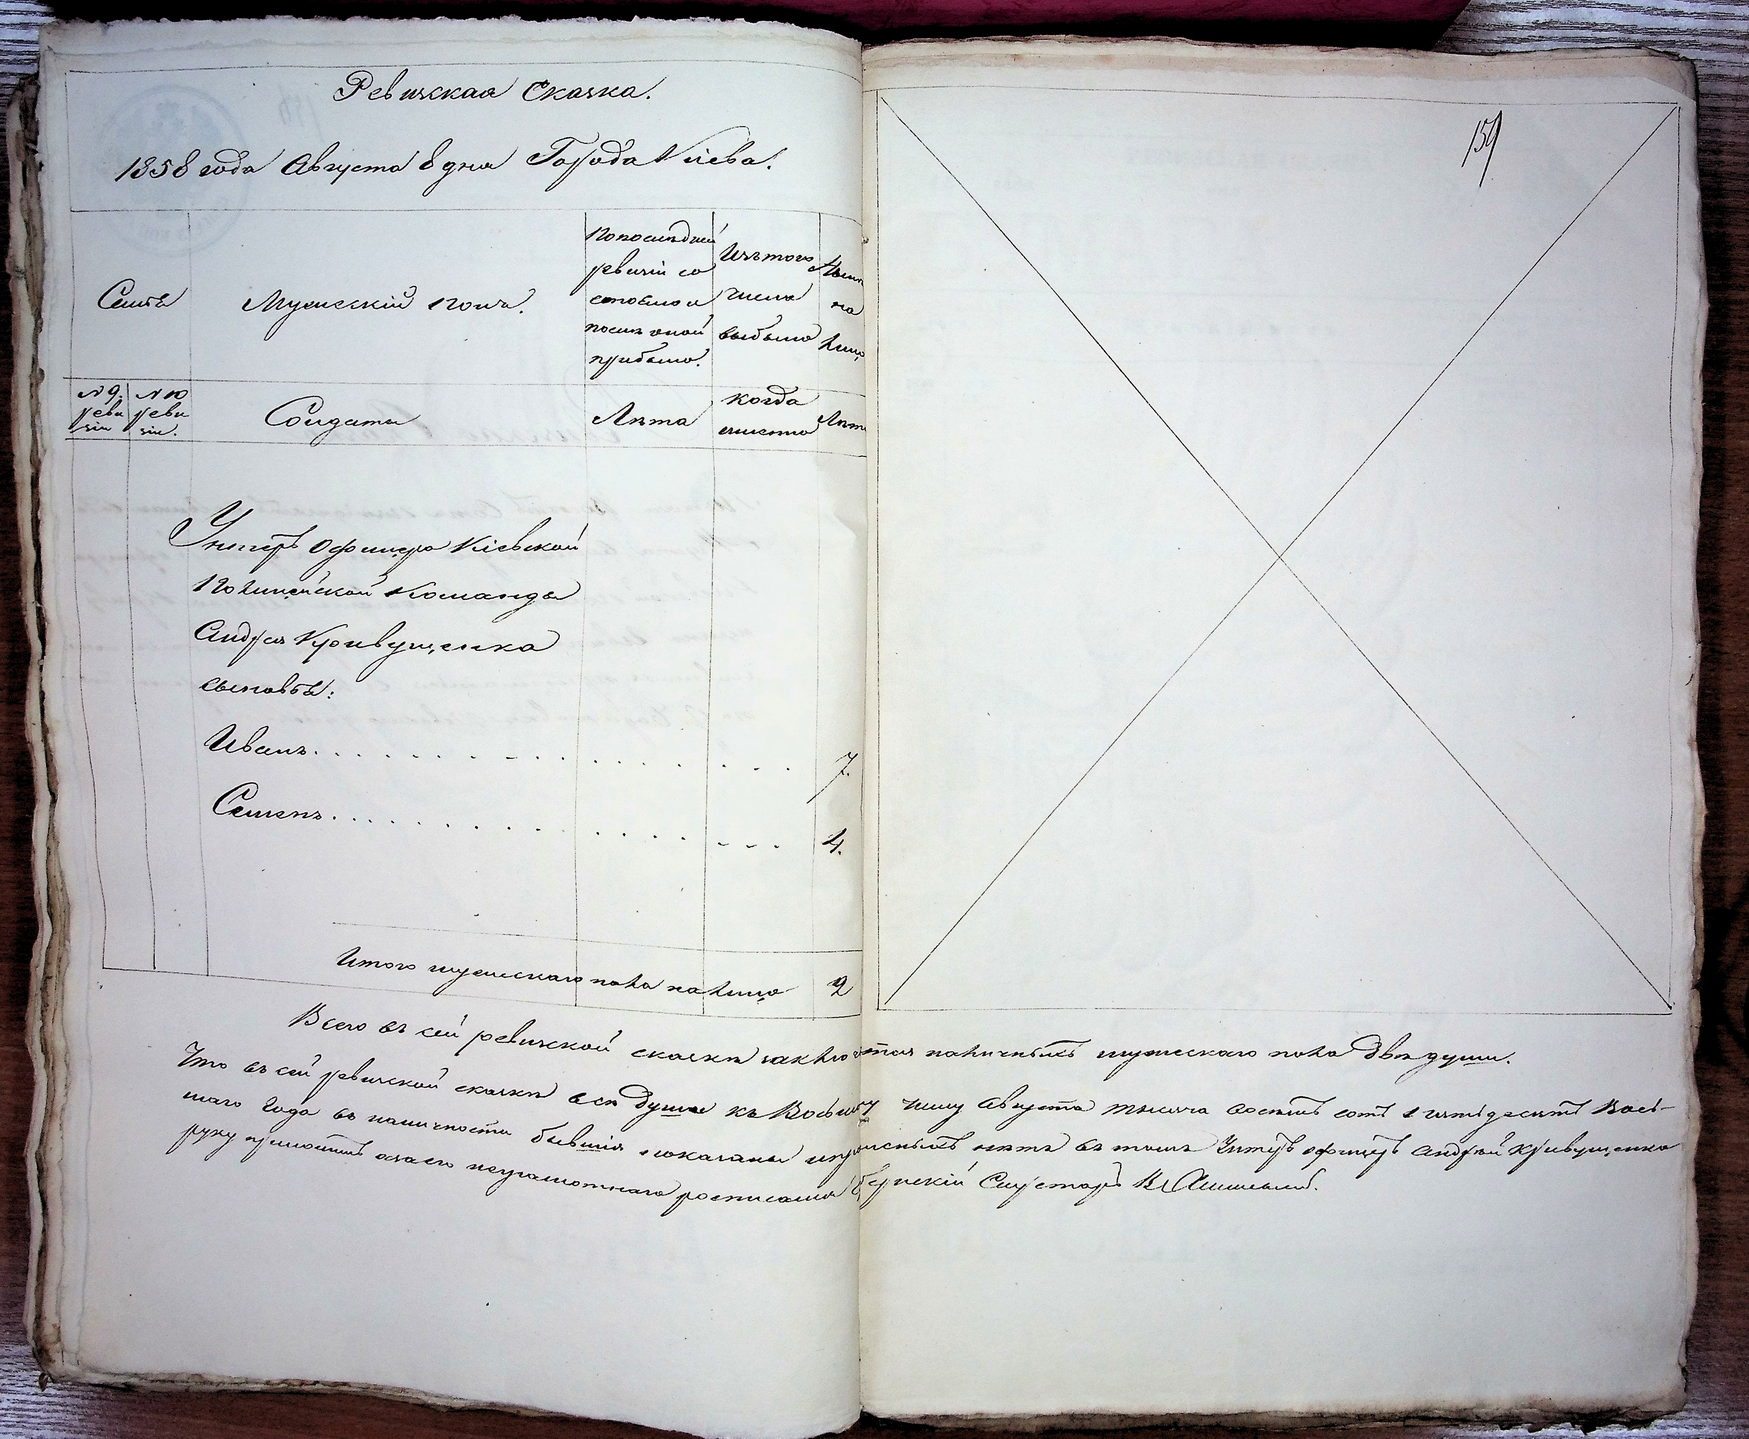 Ревизская Сказка.
159
1858 года Августа 8 дня Города Кіева.
Семьи
Мужескій полъ.
По последней
ревизіи со
стояло и
после оной
прибыло.
Изъ того
числа
выбыло
Ныне
на
лицо
№ 9.
реви
зіи
№ 10
реви
зіи.
Солдаты
Лѣта
когда
именно
Лѣта
Унтеръ Офицера Кіевской
Полицейской Команды
Андрея Кривущенка
сыновья:
Иванъ 7.
Семенъ 4.
Итого мужескаго пола на лицо 2
Всего въ сей ревизской сказкѣ заключается наличныхъ мужескаго пола двѣ души.
Что въ сей ревизской сказкѣ всѣ души къ Восьмому числу Августа тысяча восемь сотъ пятьдесятъ Вось-
маго Года въ наличности бывшія показаны и прописныхъ нетъ въ томъ Унтеръ офицеръ Андрей Кривущенко
руку приложилъ а за его неграмотнаго росписался Губернскій Секретарь